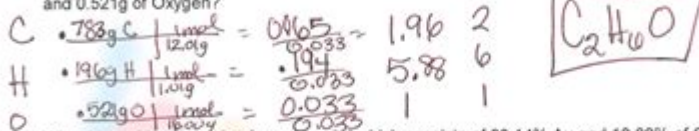 and 0.521g of Oxygen?
C .783g C | 1mol 12.01g = 0.065 0.033 = 1.96 2
C₂H₆O
H .196g H | 1mol 1.01g = .194 0.033 5.88 6
O .521g O | 1mol 16.00g = 0.033 0.033 1 1